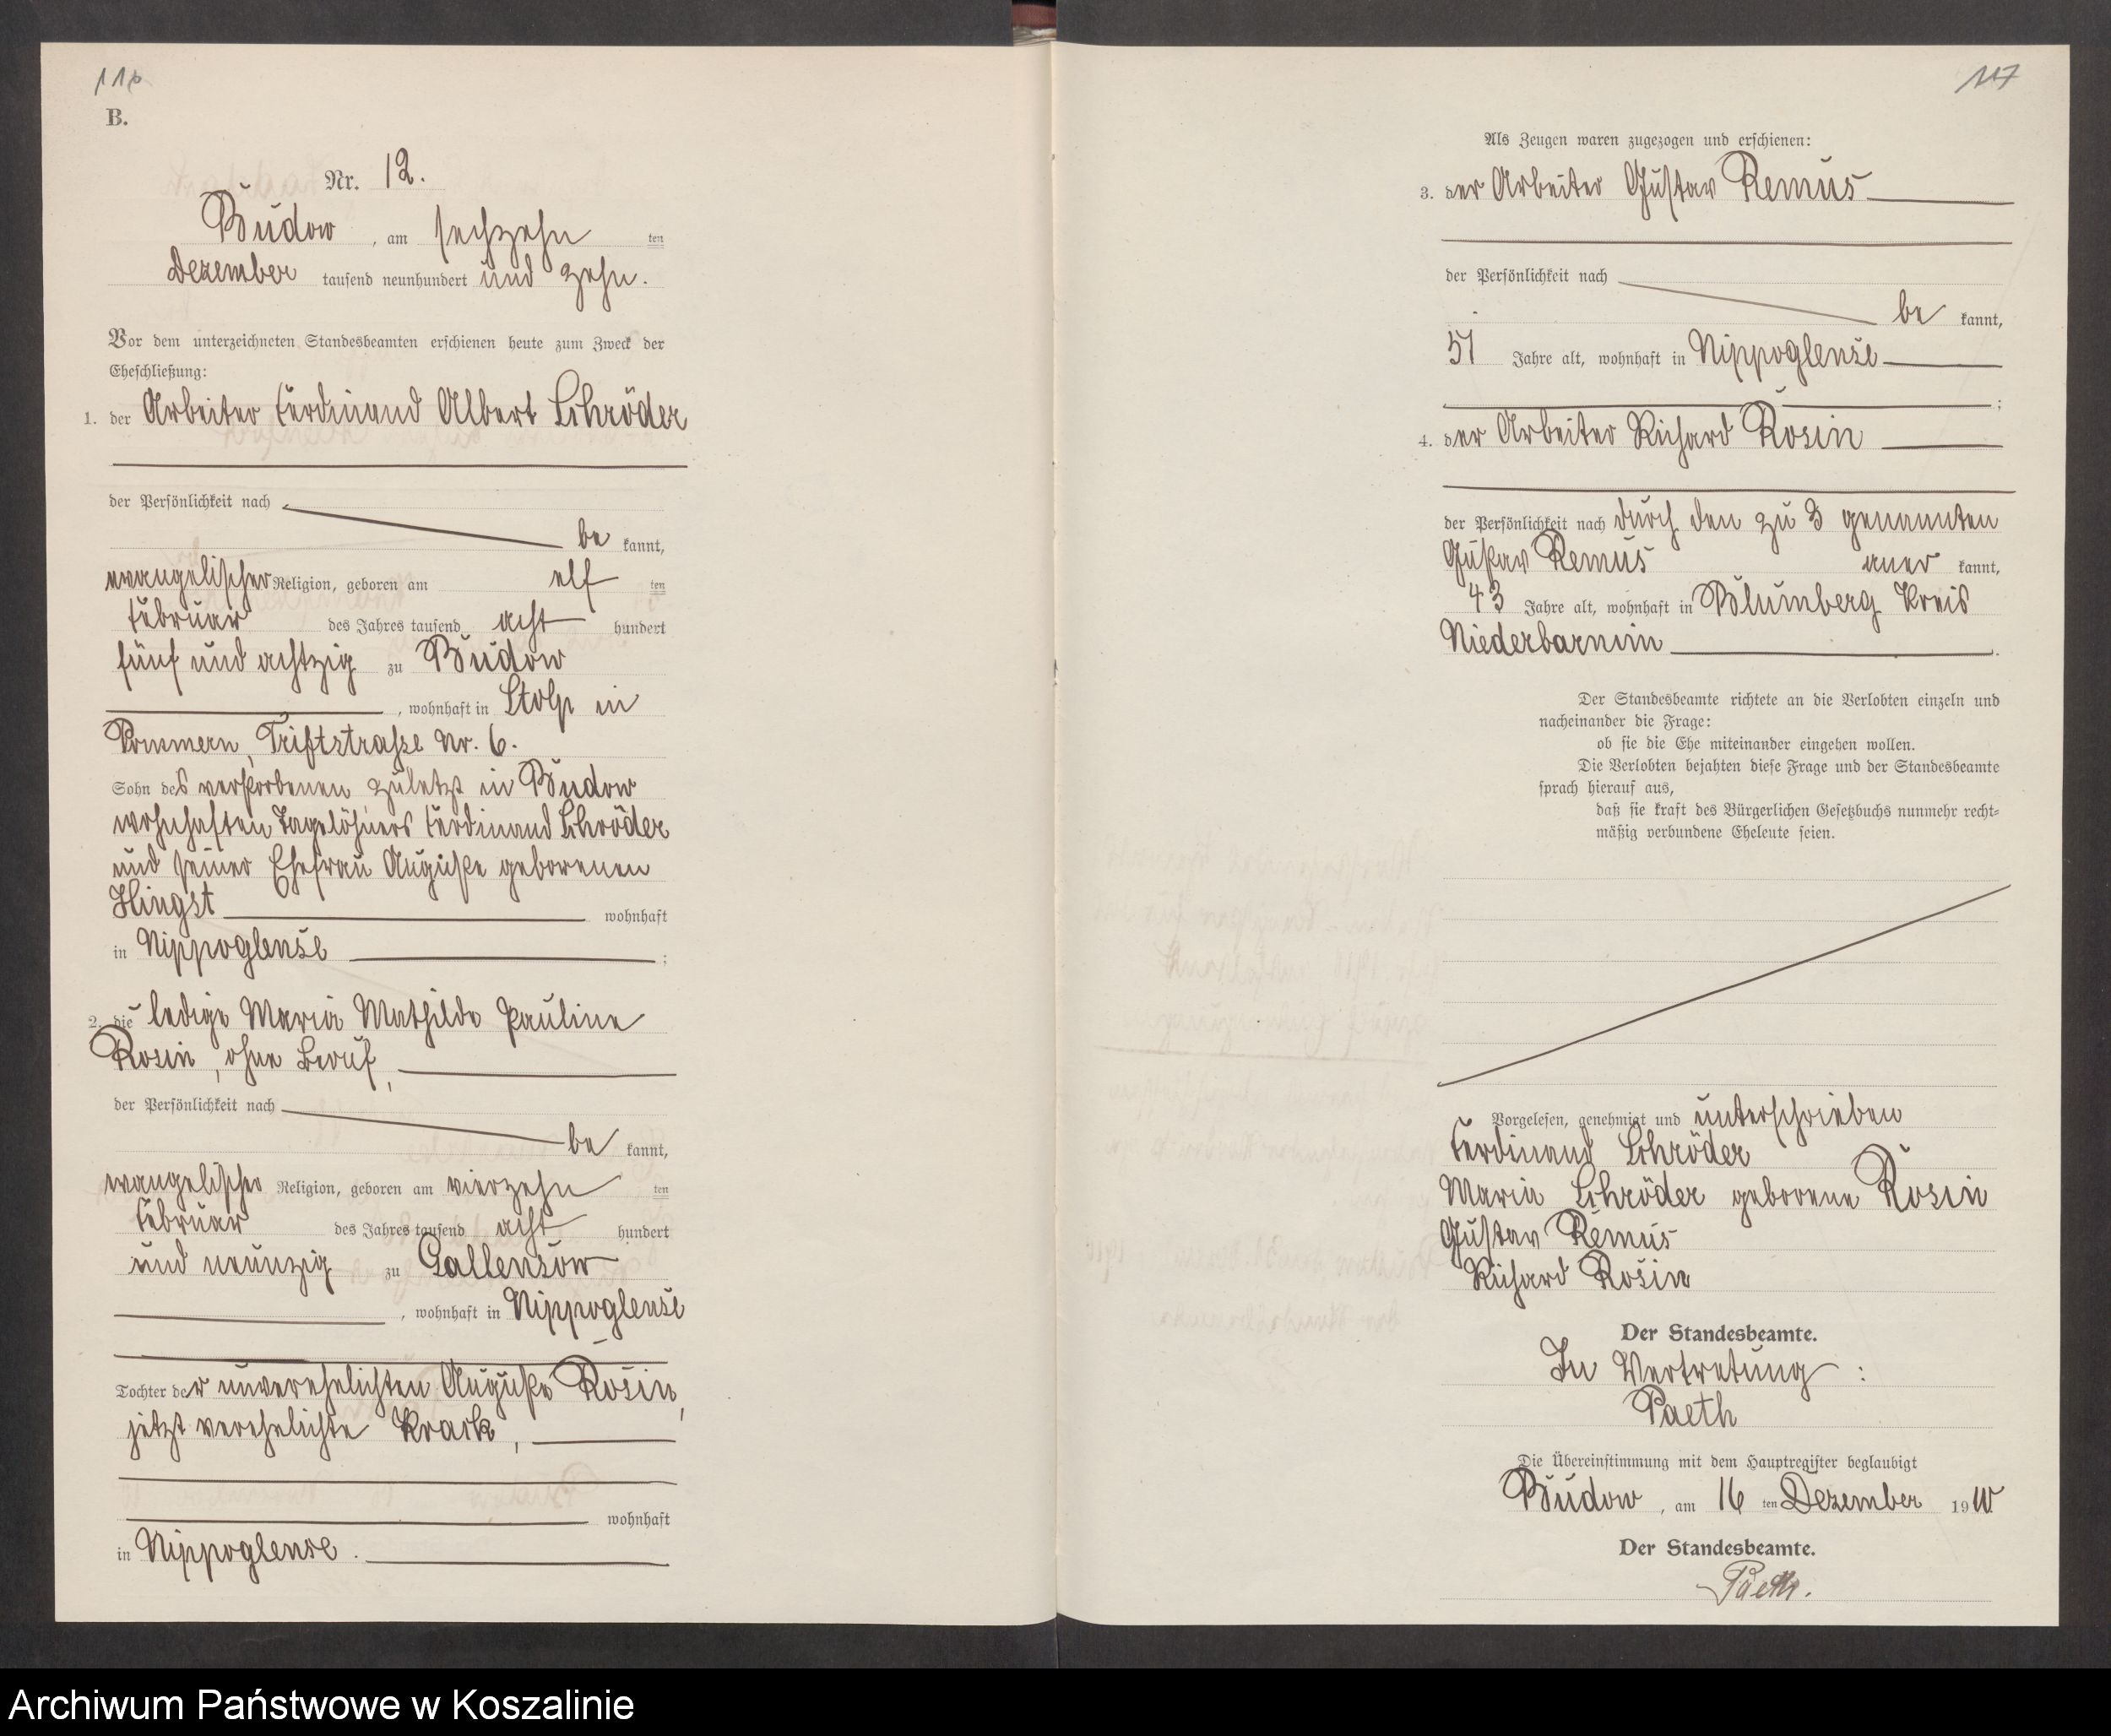 116
B.
Nr. 12.
Budow, am sechzehn ten
Dezember tausend neunhundert und zehn.
Vor dem unterzeichneten Standesbeamten erschienen heute zum Zweck der
Eheschließung:
1. der Arbeiter Ferdinand Albert Schröder
der Persönlichkeit nach
be kannt,
evangelischer Religion, geboren am elf ten
Februar des Jahres tausend acht hundert
fünf und achtzig zu Budow
, wohnhaft in Stolp in
Pommern, Triftstrasse Nr. 6.
Sohn des verstorbenen zuletzt in Budow
wohnhaften Tagelöhners Ferdinand Schröder
und seiner Ehefrau Auguste geborenen
Hingst wohnhaft
in Nippoglense ;
2. die ledige Maria Mathilde Pauline
Rosin, ohne Beruf,
der Persönlichkeit nach
be kannt,
evangelischer Religion, geboren am vierzehn ten
Februar des Jahres tausend acht hundert
und neunzig zu Gallensow
, wohnhaft in Nippoglense
Tochter der unverehelichten Auguste Rosin,
jetzt verehelichte Krack,
wohnhaft
in Nippoglense.
117
Als Zeugen waren zugezogen und erschienen:
3. der Arbeiter Gustav Remus
der Persönlichkeit nach
be kannt,
51 Jahre alt, wohnhaft in Nippoglense
;
4. der Arbeiter Richard Rosin
der Persönlichkeit nach durch den zu 3 genannten
Gustav Remus aner kannt,
43 Jahre alt, wohnhaft in Blumberg Kreis
Niederbarnim .
Der Standesbeamte richtete an die Verlobten einzeln und
nacheinander die Frage:
ob sie die Ehe miteinander eingehen wollen.
Die Verlobten bejahten diese Frage und der Standesbeamte
sprach hierauf aus,
daß sie kraft des Bürgerlichen Gesetzbuchs nunmehr recht=
mäßig verbundene Eheleute seien.
Vorgelesen, genehmigt und unterschrieben
Ferdinand Schröder
Maria Schröder geborene Rosin
Gustav Remus
Richard Rosin
Der Standesbeamte.
In Vertretung:
Paeth
Die Übereinstimmung mit dem Hauptregister beglaubigt
Budow, am 16 ten Dezember 1910
Der Standesbeamte.
Paeth.
Archiwum Państwowe w Koszalinie